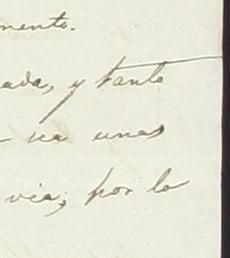 mento.
ada, y tanto
sea unas
via, por lo